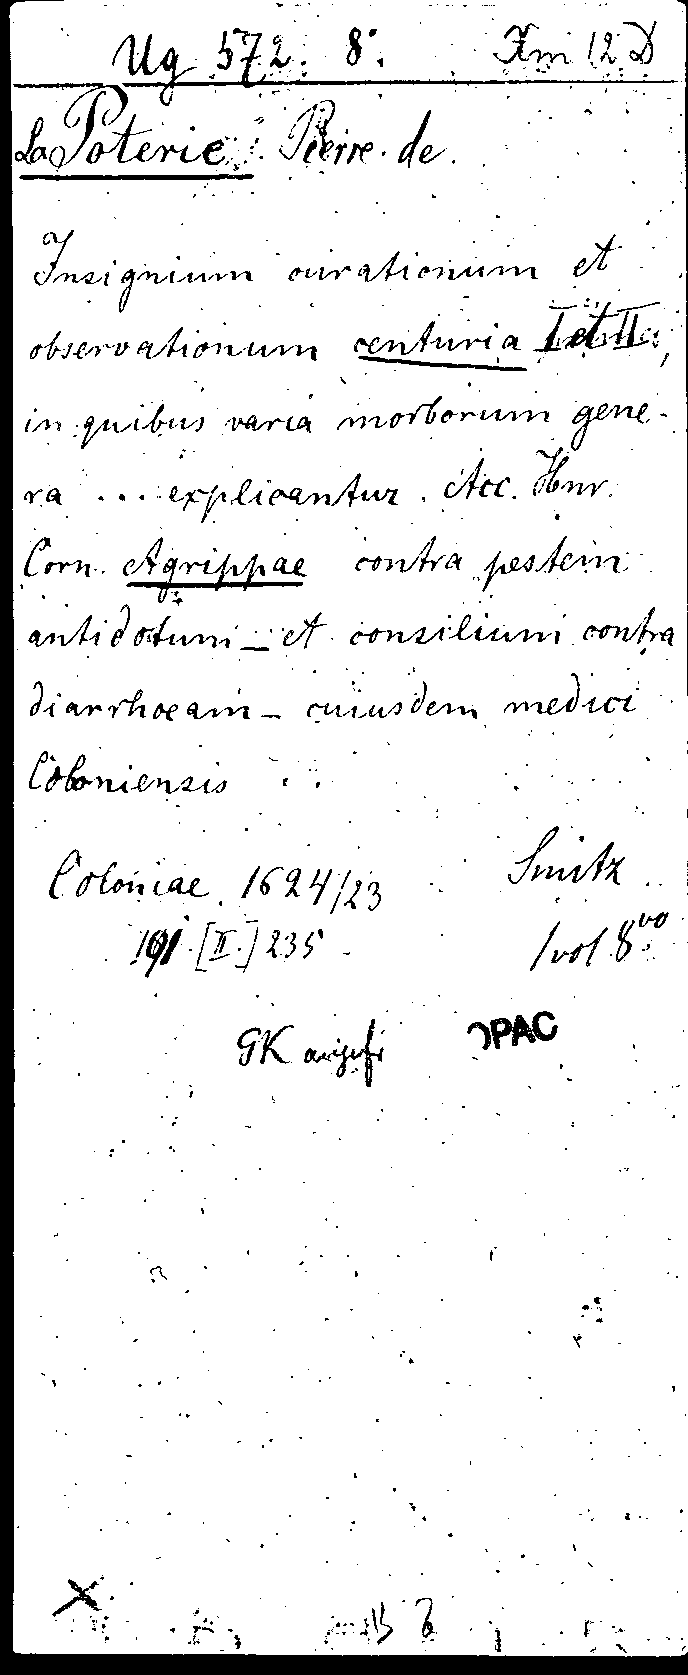 Ug 572. 8°.
La Poterie, Pierre de.
Insignium curationum et
observationum centuria I et II,
in quibus varia morborum gene-
ra ... explicantur. Acc. Hnr.
Corn. Agrippae contra pestem
antidotum – et consilium contra
diarrhoeam – cuiusdem medici
Coloniensis
Coloniae. 1624/23 Smitz
191 [II.] 235 1 vol. 8vo
GK OPAC